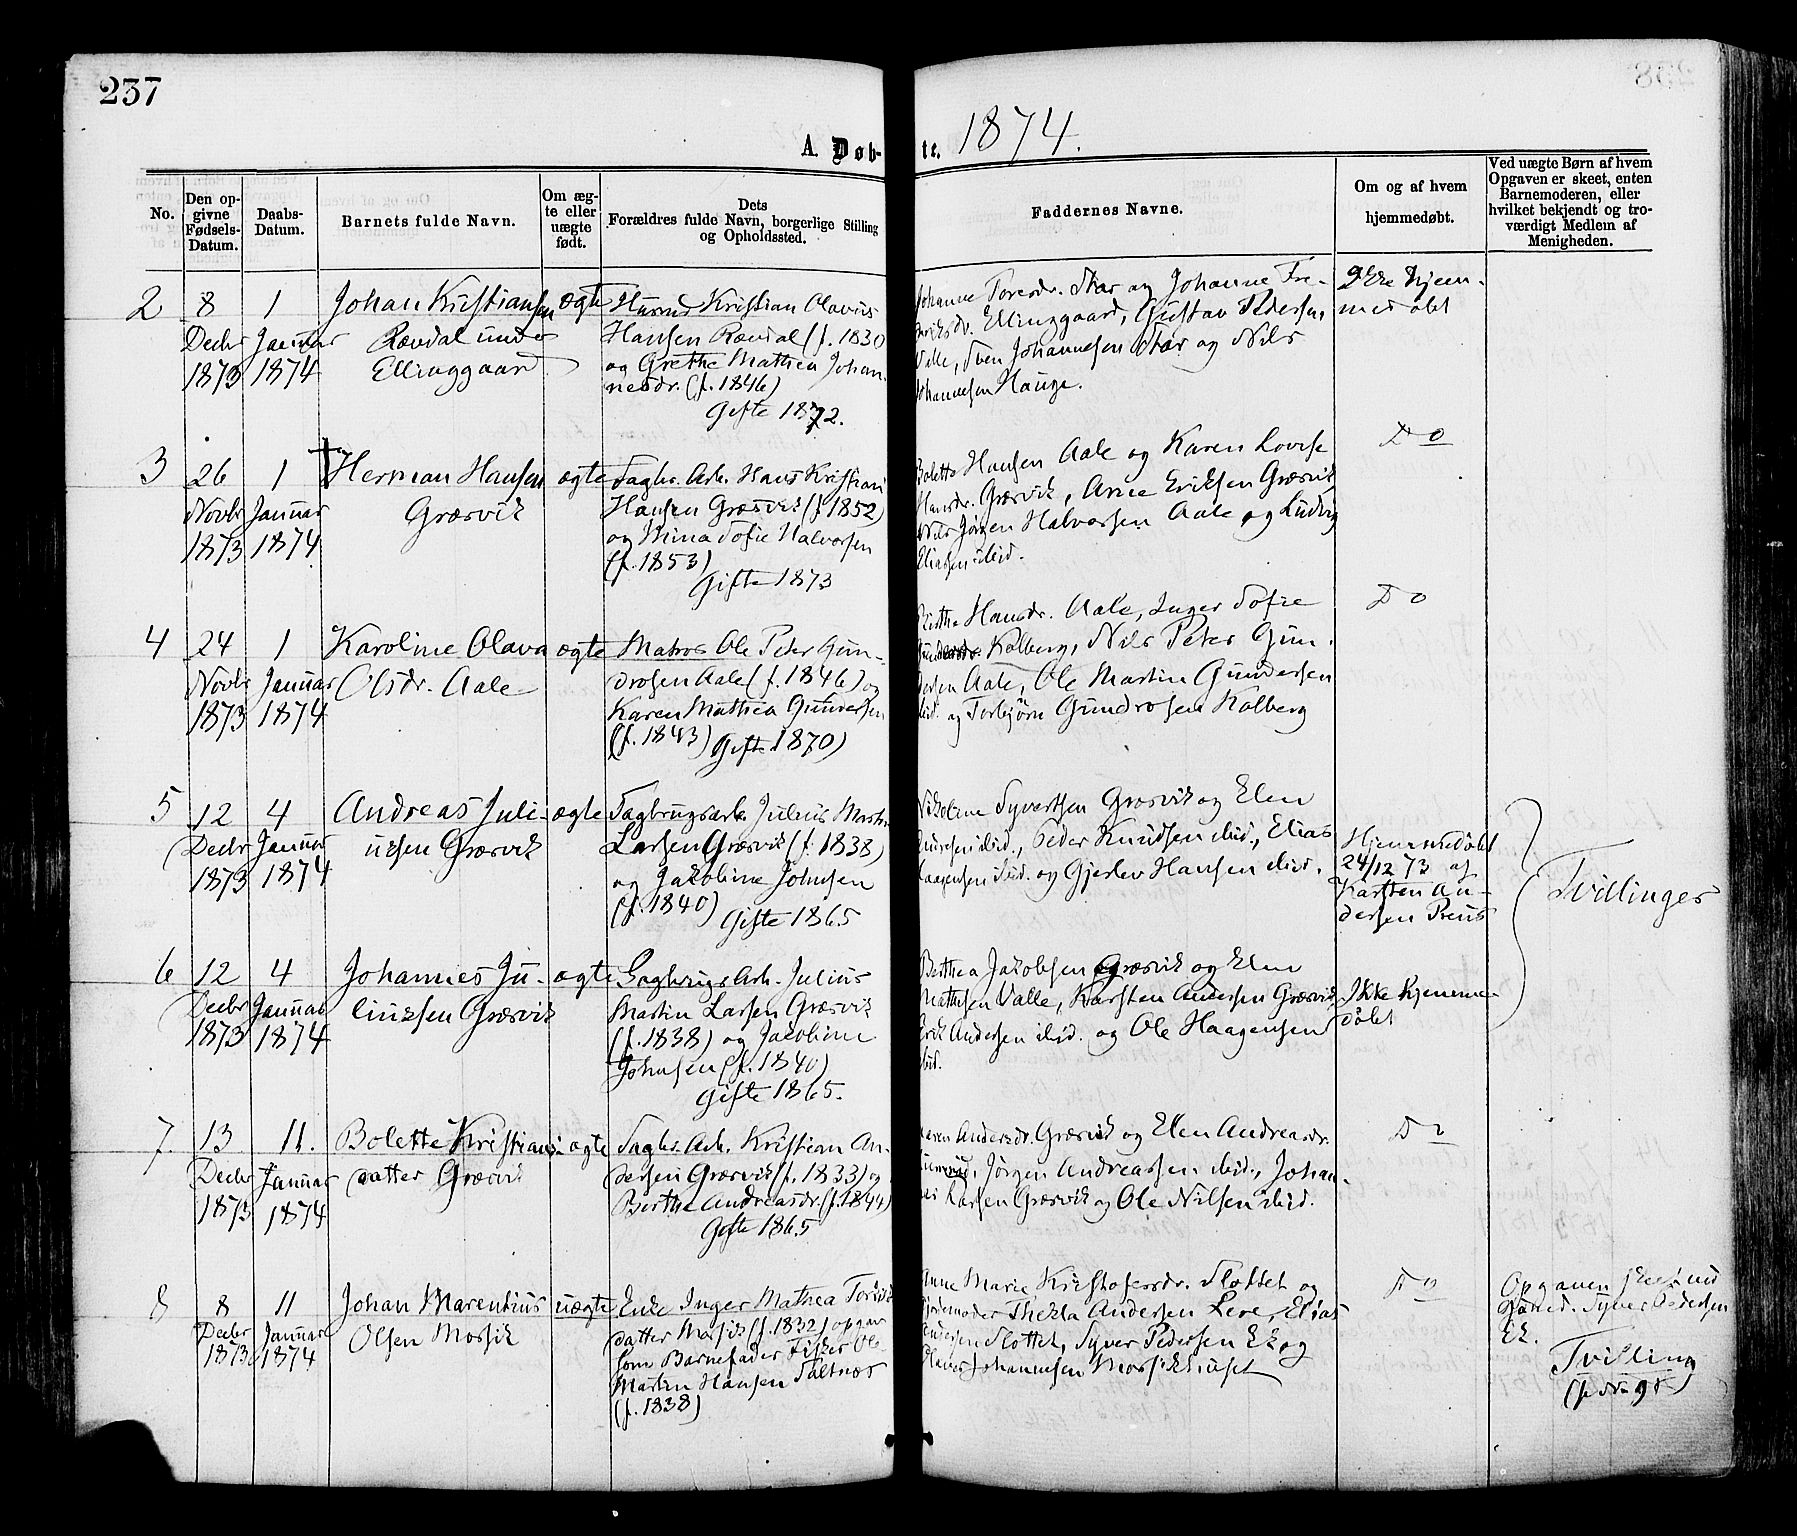 237
1874.
A. Døb-
te.
No.
Den op-
givne
Fødsels-
Datum.
Daabs-
Datum.
Barnets fulde Navn.
Om æg-
te eller
uægte
født.
Dets
Forældres fulde Navn, borgerlige Stilling
og Opholdssted.
Faddernes Navne.
Om og af hvem
hjemmedøbt.
Ved uægte Børn af hvem
Opgaven er skeet, enten
Barnemoderen, eller
hvilket bekjendt og tro-
værdigt Medlem af
Menigheden.
2
8
Decbr
1873
1
Januar
1874
Johan Kristiansen
Rævdal under
Ellinggaard
ægte
Husmd Kristian Olavus
Hansen Rævdal (f. 1830
og Grethe Mathea Johan-
nesdr. (f. 1846)
Gifte 1872.
Johanne Toresdr. Thar og Johanne Fre-
driksdr. Ellinggaard, Gustav Pedersen,
Valle, Sven Johannesen Thar og Nils
Johannesen Hauge.
Ikke hjem-
medøbt
3
26
Novbr
1873
1
Januar
1874
† Herman Hansen
Græsvik
ægte
Sagbr. Arb. Hans Kristian
Hansen Græsvik (f. 1852)
og Mina Sofie Halvorsen
(f. 1853)
Gifte 1873
Bolette Hansen Aale og Karen Lovise
Hansdr. Græsvik, Arne Eriksen Græsvik,
Nils Jørgen Halvorsen Aale og Ludvig
Eliassen ibid.
Do
4
24
Novbr
1873
1
Januar
1874
Karoline Olava
Olsdr. Aale
ægte
Matros Ole Peter Gun-
drosen Aale (f. 1846) og
Karen Mathea Gundersen
(f. 1843) Gifte 1870)
Birthe Hansdr. Aale, Inger Sofie
Kolberg, Nils Peter Gun-
dersen Aale, Ole Martin Gundersen
ibid. og Torbjörn Gundrosen Kolberg
Do
5
12
Decbr
1873
4
Januar
1874
Andreas Juli-
ussen Græsvik
ægte
Sagbrugsarb. Julius Martin
Larsen Græsvik (f. 1838)
og Jakobine Johnsen
(f. 1840)
Gifte 1865
Nikoline Syvertsen Græsvik og Elen
ibid., Peder Knudsen ibid., Elias
Haagensen ibid. og Gjerlov Hansen ibid.
Hjemmedøbt
24/12 73 af
Karsten An-
dersen Preus
Tvillinger
6
12
Decbr
1873
4
Januar
1874
Johannes Ju-
liussen Græsvik
ægte
Sagbrugs Arb. Julius
Martin Larsen Græsvik
(f. 1838) og Jacobine
Johnsen (f. 1840)
Gifte 1865.
Berthea Jakobsen Græsvik og Elen
Mathesen Valle, Karsten Andersen Græsvik,
Erik Andersen ibid. og Ole Haagensen
ibid.
Ikke hjemme-
døbt
7.
13
Decbr
1873
11.
Januar
1874
Bolette Kristians-
datter Græsvik
ægte
Sagbr. Arb. Kristian An-
dersen Græsvik (f. 1833) og
Birthe Andreasdr. (f. 1844)
Gifte 1865
Karen Andersdr. Græsvik og Elen Andreasdr.
Jørgen Andreassen ibid., Johan-
nes Larsen Græsvik og Ole Nilsen ibid.
Do
8
8
Decbr
1873
11
Januar
1874
Johan Marentius
Olsen Mossik
uægte
Enke Inger Mathea
datter Mossik (f. 1832) opgav
som Barnefader Fisker Ole
Martin Hansen Saltnæs
(f. 1838)
Anne Marie Kristofersdr. Slottet og
Gjordemoder Thekla Andersen Lere, Elias
Andersen Slottet, Syver Pedersen Ek og
Olaves Johannesen Mossik
Do
Opgaven skeet ved
Syver Pedersen
Ek.
Tvilling
(se No 98)